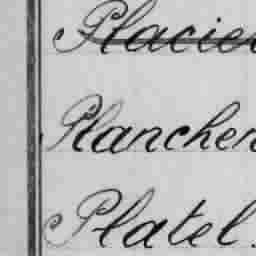 Placier
Plancher
Platel.